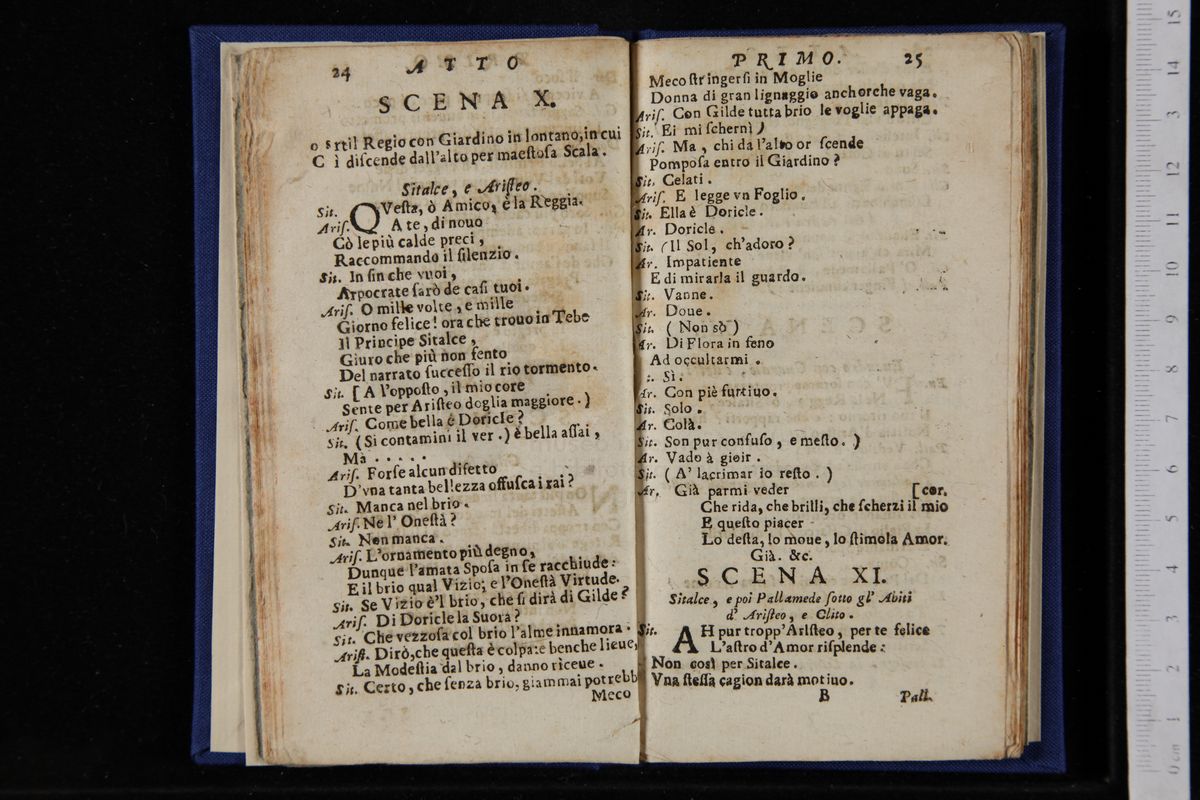 24 ATTO
SCENA X.
o srtil Regio con Giardino in lontano, in cui
C ì diſcende dall'alto per maeſtoſa Scala.
Sitalce, e Ariſteo.
Sit. QVeſta, ò Amico, è la Reggia.
Ariſ. A te, di nouo
Cò le più calde preci,
Raccommando il ſilenzio.
Sit. In ſin che vuoi,
Arpocrate ſarò de caſi tuoi.
Ariſ. O mille volte, e mille
Giorno felice! ora che trouo in Tebe
Il Principe Sitalce,
Giuro che più non ſento
Del narrato ſucceſſo il rio tormento.
Sit. [A l'oppoſto, il mio core
Sente per Ariſteo doglia maggiore.)
Ariſ. Come bella é Doricle?
Sit. (Si contamini il ver.) è bella aſſai,
Ma . . . . .
Ariſ. Forſe alcun difetto
D'vna tanta bellezza offuſca i rai?
Sit. Manca nel brio.
Ariſ. Ne l'Oneſtà?
Sit. Non manca.
Ariſ. L'ornamento più degno,
Dunque l'amata Spoſa in ſe racchiude:
E il brio qual Vizio; e l'Oneſtà Virtude.
Sit. Se Vizio è'l brio, che ſi dirà di Gilde?
Ariſ. Di Doricle la Suora?
Sit. Che vezzoſa col brio l'alme innamora.
Ariſt. Dirò, che queſta è colpa: e benche lieue,
La Modeſtia dal brio, danno riceue.
Sit. Certo, che ſenza brio, giammai potrebb
Meco
PRIMO. 25
Meco ſtringerſi in Moglie
Donna di gran lignaggio anchorche vaga.
Ariſ. Con Gilde tutta brio le voglie appaga.
Sit. Ei mi ſchernì)
Ariſ. Ma, chi da l'alto or ſcende
Pompoſa entro il Giardino?
Sit. Celati.
Ariſ. E legge vn Foglio.
Sit. Ella è Doricle.
Ar. Doricle.
Sit. (Il Sol, ch'adoro?
Ar. Impatiente
E di mirarla il guardo.
Sit. Vanne.
Ar. Doue.
Sit. (Non sò)
Ar. Di Flora in ſeno
Ad occultarmi.
:. Sì.
Ar. Con piè furtiuo.
Sit. Solo.
Ar. Colà.
Sit. Son pur confuſo, e meſto.)
Ar. Vado à gioir.
Sit. (A' lacrimar io reſto.)
Ar. Già parmi veder [cor.
Che rida, che brilli, che ſcherzi il mio
E queſto piacer
Lo deſta, lo moue, lo ſtimola Amor.
Già. &c.
SCENA XI.
Sitalce, e poi Pallamede ſotto gl' Abiti
d' Ariſteo, e Clito.
Sit. AH pur tropp'Ariſteo, per te felice
L'aſtro d'Amor riſplende:
Non così per Sitalce.
Vna ſteſſa cagion darà motiuo.
B Pall.